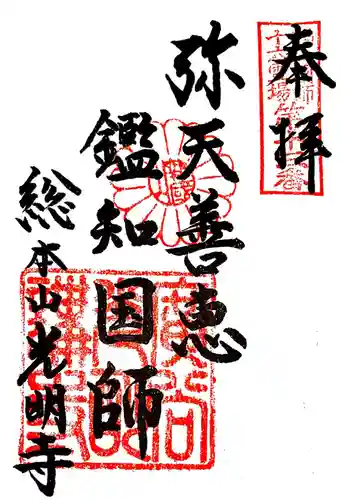 奉拝
弥天善恵
鑑知国師
総本山光明寺